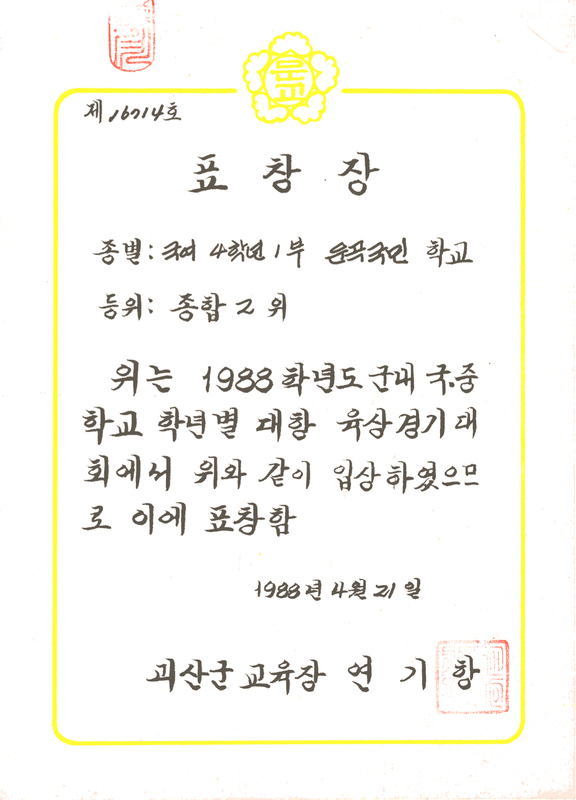 문교
제 16714호
표창장
종별: 국여 4학년 1부 운곡국민 학교
등위: 종합 2 위
위는 1988학년도 군내 국.중
학교 학년별 대항 육상경기대
회에서 위와 같이 입상하였으므
로 이에 표창함
1988년 4월 21일
괴산군교육장 연 기 항